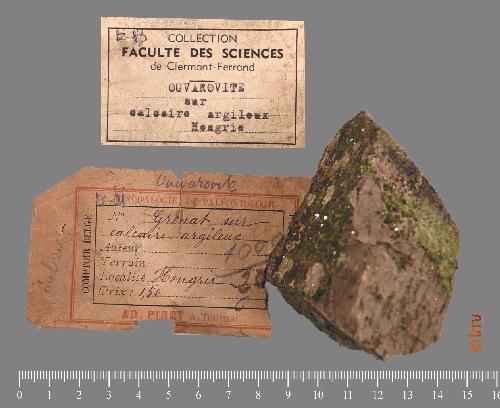 E-83
COLLECTION
FACULTE DES SCIENCES
de Clermont-Ferrand
OUVAROVITE
sur
calcaire argileux
Hongrie
Ouvarovite
MINÉRALOGIE DE PALÉONTOLOGIE
COMPTOIR BELGE
N°
Grenat sur
calcaire argileux
Auteur
Terrain
Localité Hongrie
Prix: 1,50
400
AD. PIRET à Tournai
©bru
0 1 2 3 4 5 6 7 8 9 10 11 12 13 14 15 16